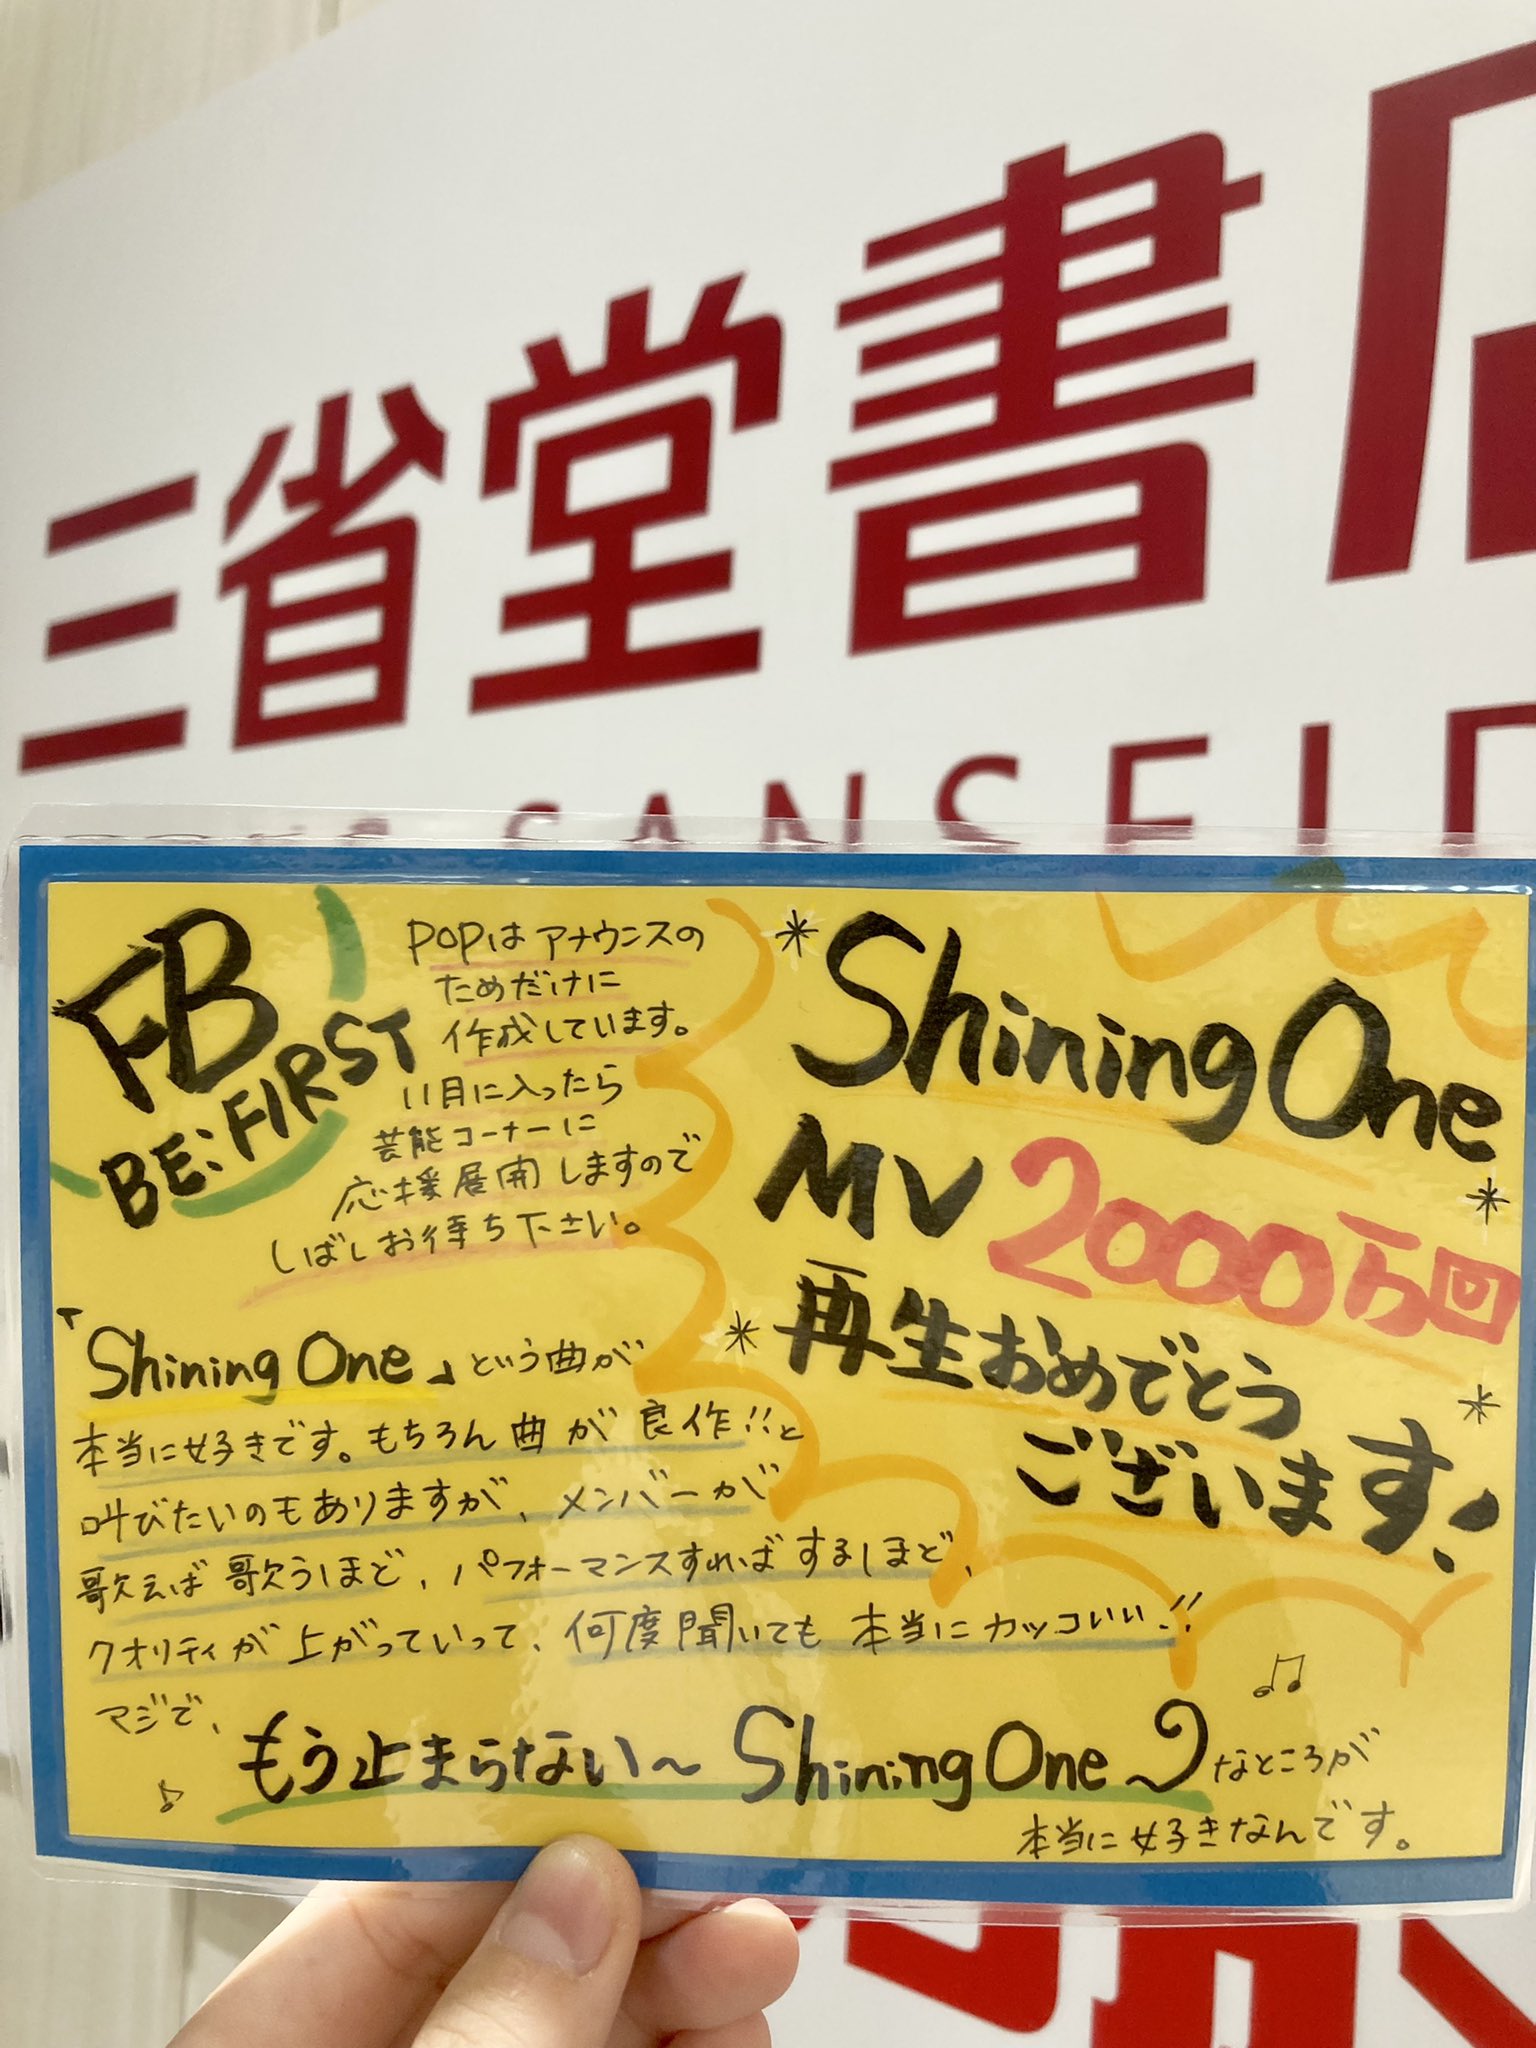 三省堂書店
BOOKS SANSEIDO
FB
BE:FIRST
POPは アナウンスの
ためだけに
作成しています。
11月に入ったら
芸能コーナーに
応援展開しますので
しばしお待ち下さい。
Shining One
MV 2000万回
再生おめでとう
ございます!
「Shining One」という曲が
本当に好きです。もちろん 曲が 良作!!と
叫びたいのもありますが、メンバーが
歌えば 歌うほど、パフォーマンスすればするほど、
クオリティが 上がっていって、何度聞いても 本当にカッコいい!!
マジで、
もう止まらない〜 Shining One なところが
本当に好きなんです。